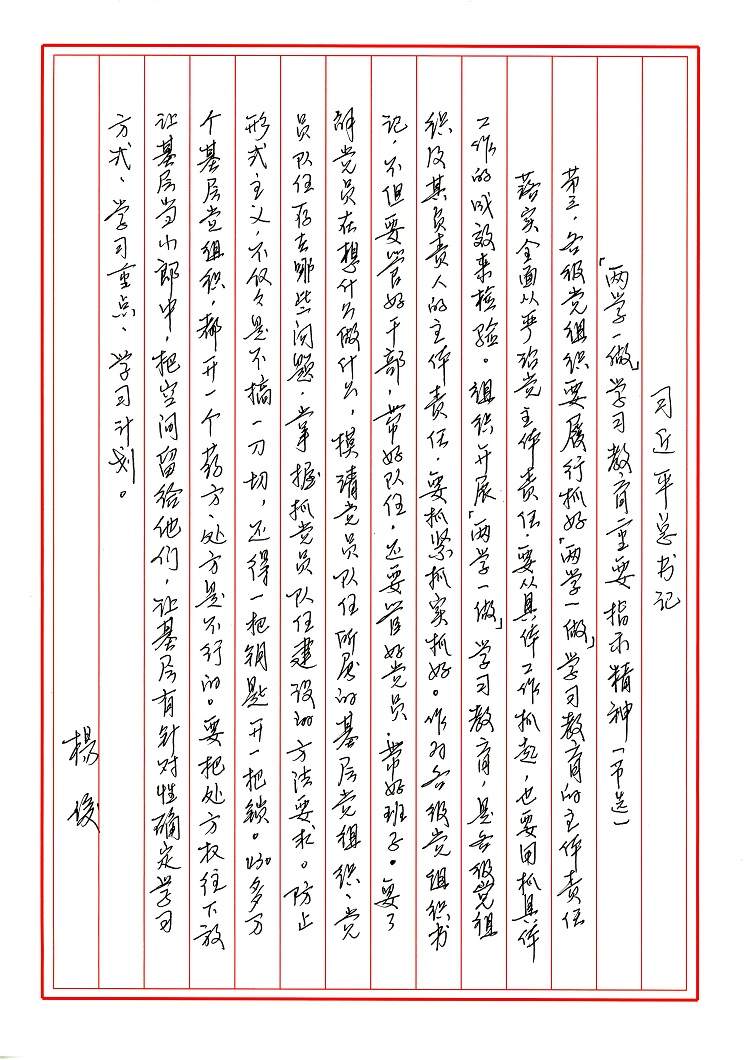 习近平总书记
「两学一做」学习教育重要指示精神「节选」
第三，各级党组织要履行抓好「两学一做」学习教育的主体责任
落实全面从严治党主体责任，要从具体工作抓起，也要因抓具体
工作的成效来检验。组织开展「两学一做」学习教育，是各级党组
织及其负责人的主体责任，要抓紧抓实抓好。作为各级党组织书
记，不但要管好干部，带好队伍，还要管好党员，带好班子。要了
解党员在想什么做什么，摸清党员队伍所属的基层党组织、党
员队伍存在哪些问题，掌握抓党员队伍建设的方法要求。防止
形式主义，不仅々是不搞一刀切，还得一把钥匙开一把锁。430多万
个基层党组织，都开一个药方，处方是不行的。要把处方权往下放
让基层当小郎中，把空间留给他们，让基层有针对性确定学习
方式、学习重点、学习计划。
杨俊